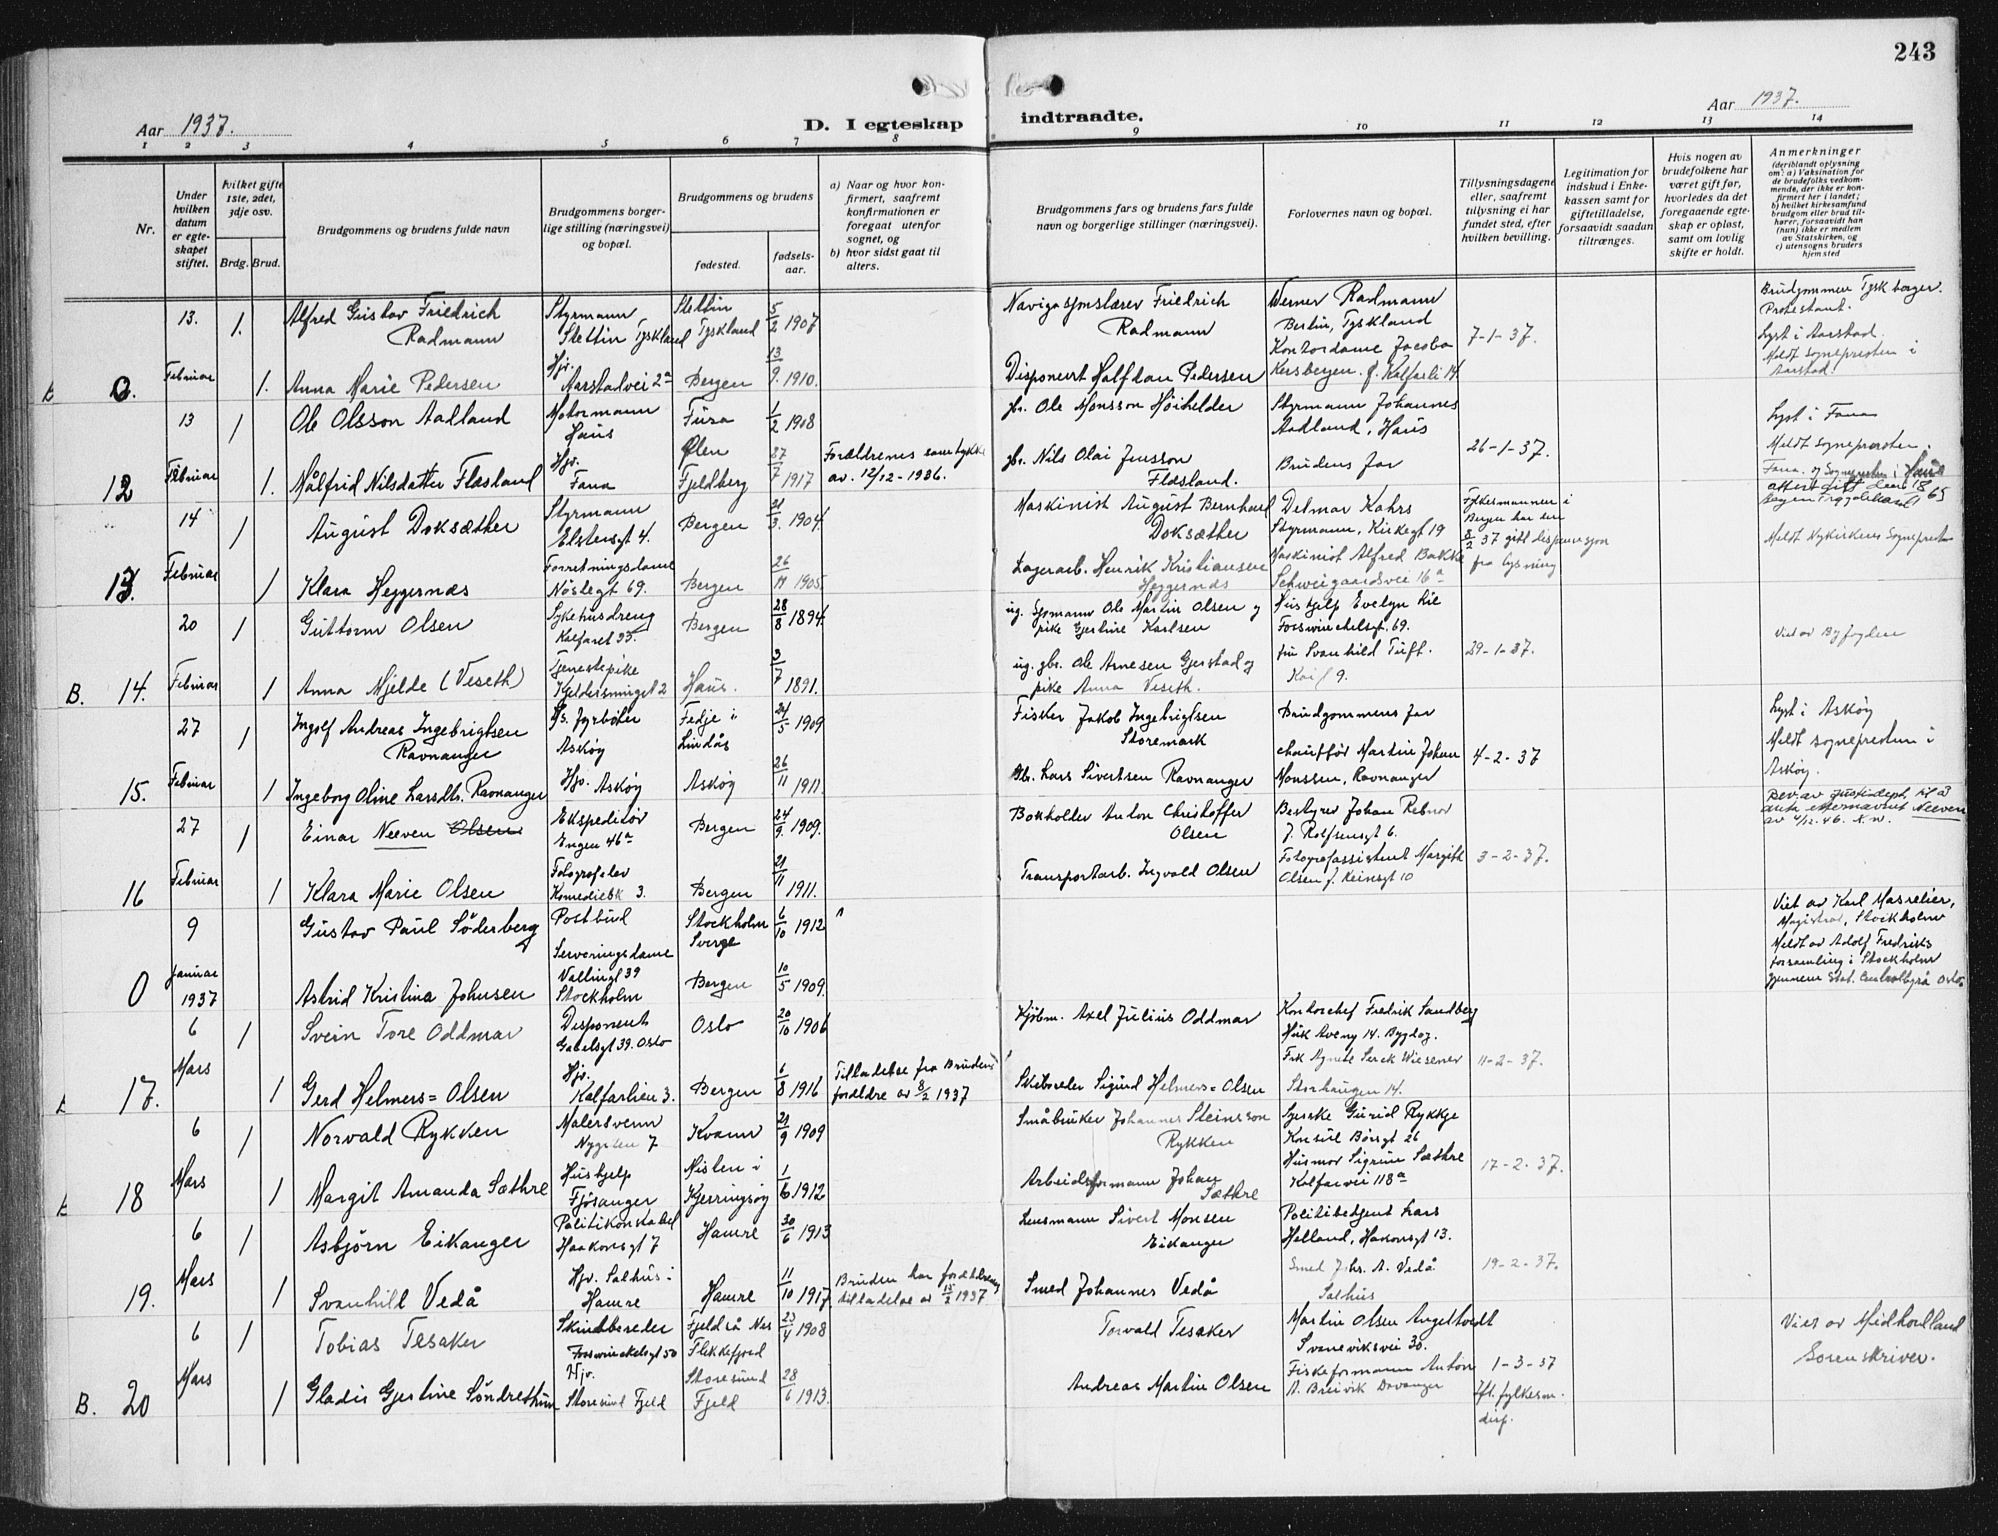 243
Aar 1937.
D. I egteskap indtraadte.
Aar 1937.
1 2 3 4 5 6 7 8 9 10 11 12 13 14
Nr.
Under hvilken datum er egteskapet stiftet.
hvilket gifte 1ste, 2det, 3dje osv.
Brdg. Brud.
Brudgommens og brudens fulde navn
Brudgommens borgerlige stilling (næringsvei) og bopæl.
Brudgommens og brudens
fødested.
fødselsaar.
a) Naar og hvor konfirmert, saafremt konfirmationen er foregaat utenfor sognet, og
b) hvor sidst gaat til alters.
Brudgommens fars og brudens fars fulde navn og borgerlige stillinger (næringsvei).
Forlovernes navn og bopæl.
Tillysningsdagene eller, saafremt tillysning ei har fundet sted, efter hvilken bevilling.
Legitimation for indskud i Enkekassen samt for giftetilladelse, forsaavidt saadan tiltrænges.
Hvis nogen av brudefolkene har været gift før, hvorledes da det foregaaende egteskap er opløst, samt om lovlig skifte er holdt.
Anmerkninger
(deriblandt oplysning om: a) Vaksination for de brudefolks vedkommende, der ikke er konfirmert her i landet; b) hvilket kirkesamfund brudgom eller brud tilhører, forsaavidt han (hun) ikke er medlem av Statskirken, og c) utensogns bruders hjemsted
13. 1. Alfred Gustav Friedrich Radmann Styrmann Stettin Tyskland Stettin Tyskland 5/2 1907 Navigasjonslærer Friedrich Radmann Werner Radmann Berlin, Tyskland 7-1-37. Brudgommen Tysk borger. Protestant.
0. Februar 1. Anna Marie Pedersen Hjv. Aarstadvei 2a Bergen 13/9. 1910. Disponent Halfdan Pedersen Kontordame Jacoba Kersbergen. f. Kalfarli 14. Lyst i Aarstad. Meldt sogneprester i Aarstad.
13 1 Ole Olsson Aadland Motormann Haus Fusa 1/2 1908 gbr. Ole Monsson Høihelder Styrmann Johannes Aadland, Haus 26-1-37. Lyst i Fana
12 Februar 1. Målfrid Nilsdatter Flæsland Hjv. Fana Ølen Fjeldberg 27/7 1917 Forældrenes samtykke av 12/12-1936. gbr. Nils Olai Jensson Flæsland. Brudens far Meldt sognepresten. Fana. og Sognepresten i Haus
14 1 August Doksæther Styrmann Elstersgt 4. Bergen 21/3. 1904. Maskinist August Bernhard Doksæther Detmar Kahrs Styrmann, Kirkegt 19 Fylkesmannen i Bergen har den 8/2 37 gitt dispensasjon fra lysning Meldt Nykirkens Sogneprest
13. Februar 1 Klara Heggernæs Forretningsdame Nøstegt 69. Bergen 26/11 1905. Lagerarb. Henrik Kristiansen Heggernæs Maskinist Alfred Bakke Schweigaardsvei 16a
20 1 Guttorm Olsen Sykehusdreng Kalfaret 33. Bergen 28/8 1894. ug. Sjømann Ole Martin Olsen og pike Gjertine Karlsen Hushjelp Evelyn Lie Fosswinckelsgt. 69. 29-1-37. Viet av Byfogden
B. 14. Februar 1 Anna Mjelde (Veseth) Tjenestepike Haus. 3/7 1891. ug. gbr. Ole Arnesen Gjerstad og pike Anna Veseth. fru Svanhild Tuft.
27 1 Ingolf Andreas Ingebrigtsen Ravnanger Fyrbøter Askøy Fedje i Lindås 24/5 1909 Fisker Jakob Ingebrigtsen Storemark Brudgommens far 4-2-37 Lyst i Askøy
15. Februar 1 Ingeborg Oline Larsdtr. Ravnanger Hjv. Askøy Askøy 26/11 1911 Gb. Lars Sivertsen Ravnanger chauffør Martin Johan Monssen, Ravnanger Meldt sognepresten i Askøy.
27 1 Einar Neeven Olsen Ekspeditør Engen 46a Bergen 24/9. 1909. Bokholder Anton Christoffer Olsen Bestyrer Johan Rebnor J. Rolfsensgt 6. 3-2-37. Bev. av Justisdept. til å anta etternavnet Neeven av 4/12-46. K.w.
16 Februar 1 Klara Marie Olsen Fotografelev Komediebk 3. Bergen 21/11 1911. Transportarb. Ingvald Olsen Fotografassistent Margith Olsen J. Keinsgt 10
9 Gustav Paul Söderberg Postbud Stockholm Sverge 6/10 1912 Viet av Karl Masrelier, Magistrat, Stockholm
0 Januar 1937 Astrid Kristina Johnsen Serveringsdame Vallingt 39 Stockholm Bergen 10/5 1909. Meldt av Adolf Fredriks forsamling i Stockholm gjennem Stat. Centralbyrå Oslo
6 1 Svein Tore Oddmar Disponent Gabelsgt 39. Oslo Oslo 20/10 1906 Kjøbm. Axel Julius Oddmar Kontorchef Fredrik Sandberg Huk Aveny 14. Bygdøy. 11-2-37.
17. Mars 1 Gerd Helmers=Olsen Hjv. Kalfarlien 3. Bergen 6/8 1916 Tilladelse fra Brudens forældre av 8/2 1937 Skibsreder Sigurd Helmers=Olsen Frk Agnete Serck Wiesener Storhaugen 14.
6 1 Norvald Rykken Malersvenn Nygaten 7 Kvam 21/9 1909 Småbruker Johannes Steinsson Rykken Sjerske Gurid Rykkje Konsul Børsgt 26 17-2-37.
18 Mars 1 Margit Amanda Sæthre Hushjelp Fjøsanger Nislen i Kjerringsøy 1/6 1912 Arbeidsformann Johan Sæthre Husmor Sigrun Sæthre Kalfarvei 118a
6 1 Asbjørn Eikanger Politikonstabel Haakonsgt 7 Hamre 30/6 1913 Lensmann Sivert Monsen Eikanger Politibetjent Lars Helland, Hakonsgt 13. 19-2-37.
19. Mars 1 Svanhill Vedå Hjv. Salhus i Hamre Hamre 11/10 1917 Bruden har forældrenes tilladelse av 15/2 1937 Smed Johannes Vedå Smed Johs. A. Vedå Salhus
6 1 Tobias Tesaker Skindbereder Fosswinckelsgt 50 Flekkefjord 23/4 1908 Torvald Tesaker Martin Olsen Angeltvedt Svaneviksvei 30. 1-3-37 Viet av Midhordland Sorenskriver.
B. 20 Mars 1 Gladis Gjertine Søndrethun Hjv. Storesund Fjeld Storesund Fjeld 28/6 1913. Andreas Martin Olsen Fiskeformann Anton A. Breivik Davanger Ifl. fylkesm. disp.